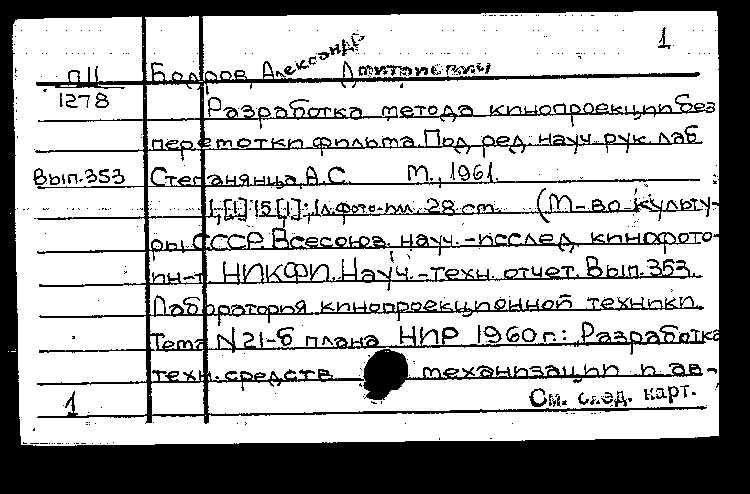 1
П11 Бодров, Александр Дмитриевич
1278 Разработка метода кинопроекции без
перемотки фильма. Под ред. науч. рук. лаб
Вып.353 Степанянца, А.С. М., 1961.
1,[1] 15 [1]; 1л.фото-илл. 28 см. (М-во культу-
ры СССР. Всесоюз. науч.-исслед. кинофото-
ин-т НИКФИ. Науч.-техн. отчет. Вып. 353.
Лаборатория кинопроекционной техники.
Тема N21-б плана НИР 1960 г.: „Разработка
техн. средств механизации и ав-
1 См. след. карт.